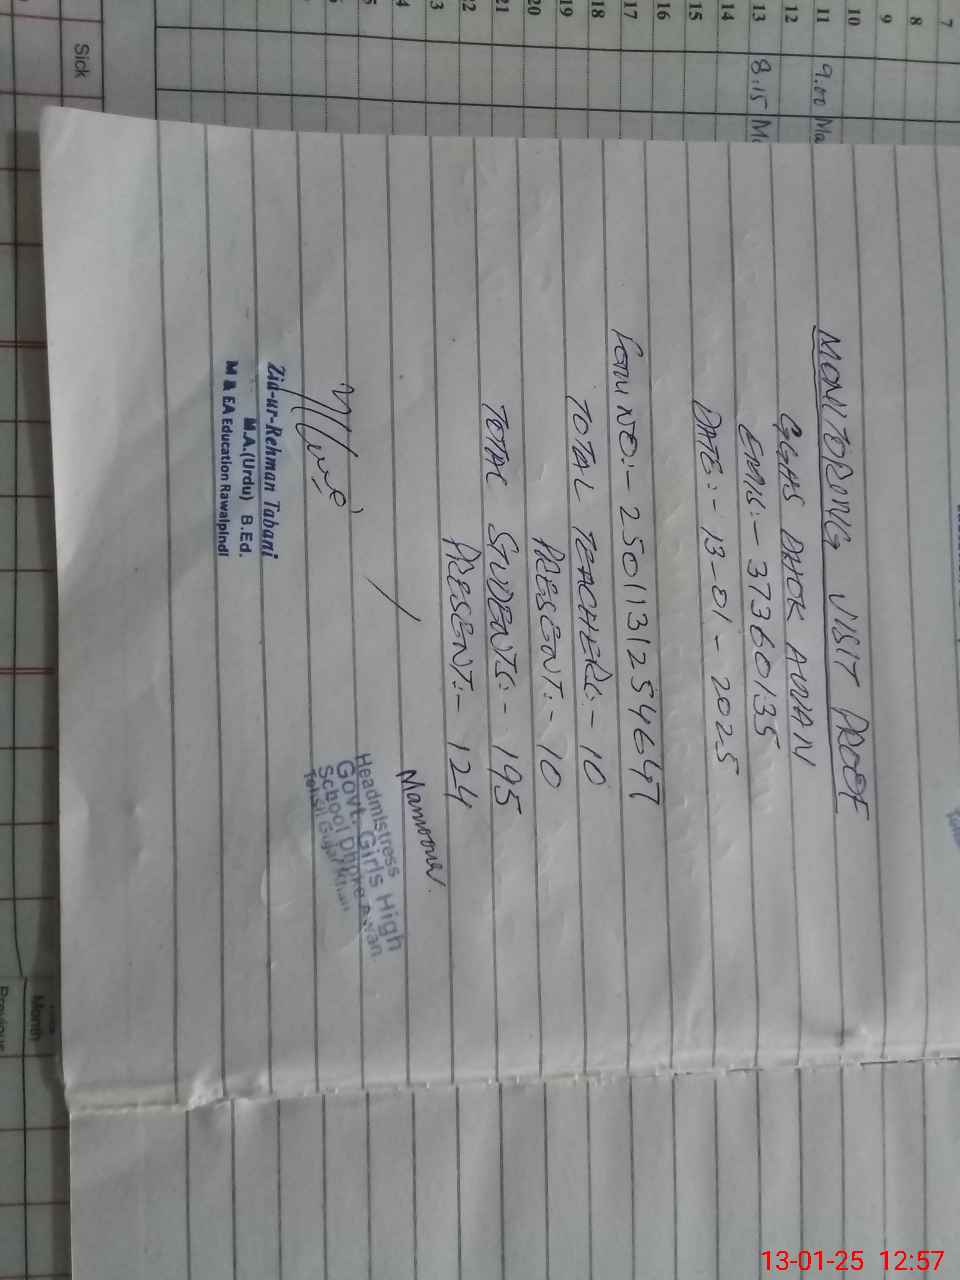 MONITORING VISIT PROOF
GGHS DHOK AWAN
EMIS:- 37360135
DATE:- 13-01-2025
TOTAL TEACHERS:- 10
PRESENT:- 10
TOTAL STUDENTS:- 195
PRESENT:- 124
Zia-ur-Rehman Tabani
M.A.(Urdu) B.Ed.
M & EA Education Rawalpindi
Headmistress
Govt. Girls High
School Dhoke Awan
Tehsil Gujar Khan
7
8
9
10
11 9.00
12
13 8.15
14
15
16
17
18
19
20
21
22
3
4
5
Sick
Month
Previous
13-01-25 12:57